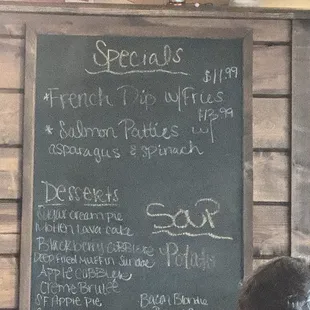 Specials
$11.99
*French Dip w/Fries
$13.99
*Salmon Patties w/
asparagus & spinach
Desserts
Sugar cream pie
Molten lava cake
Blackberry cobbler
Deep fried muffin Sundae
Apple cobbler
Creme Brulee
SF Apple pie
Soup
Potato
Blondie